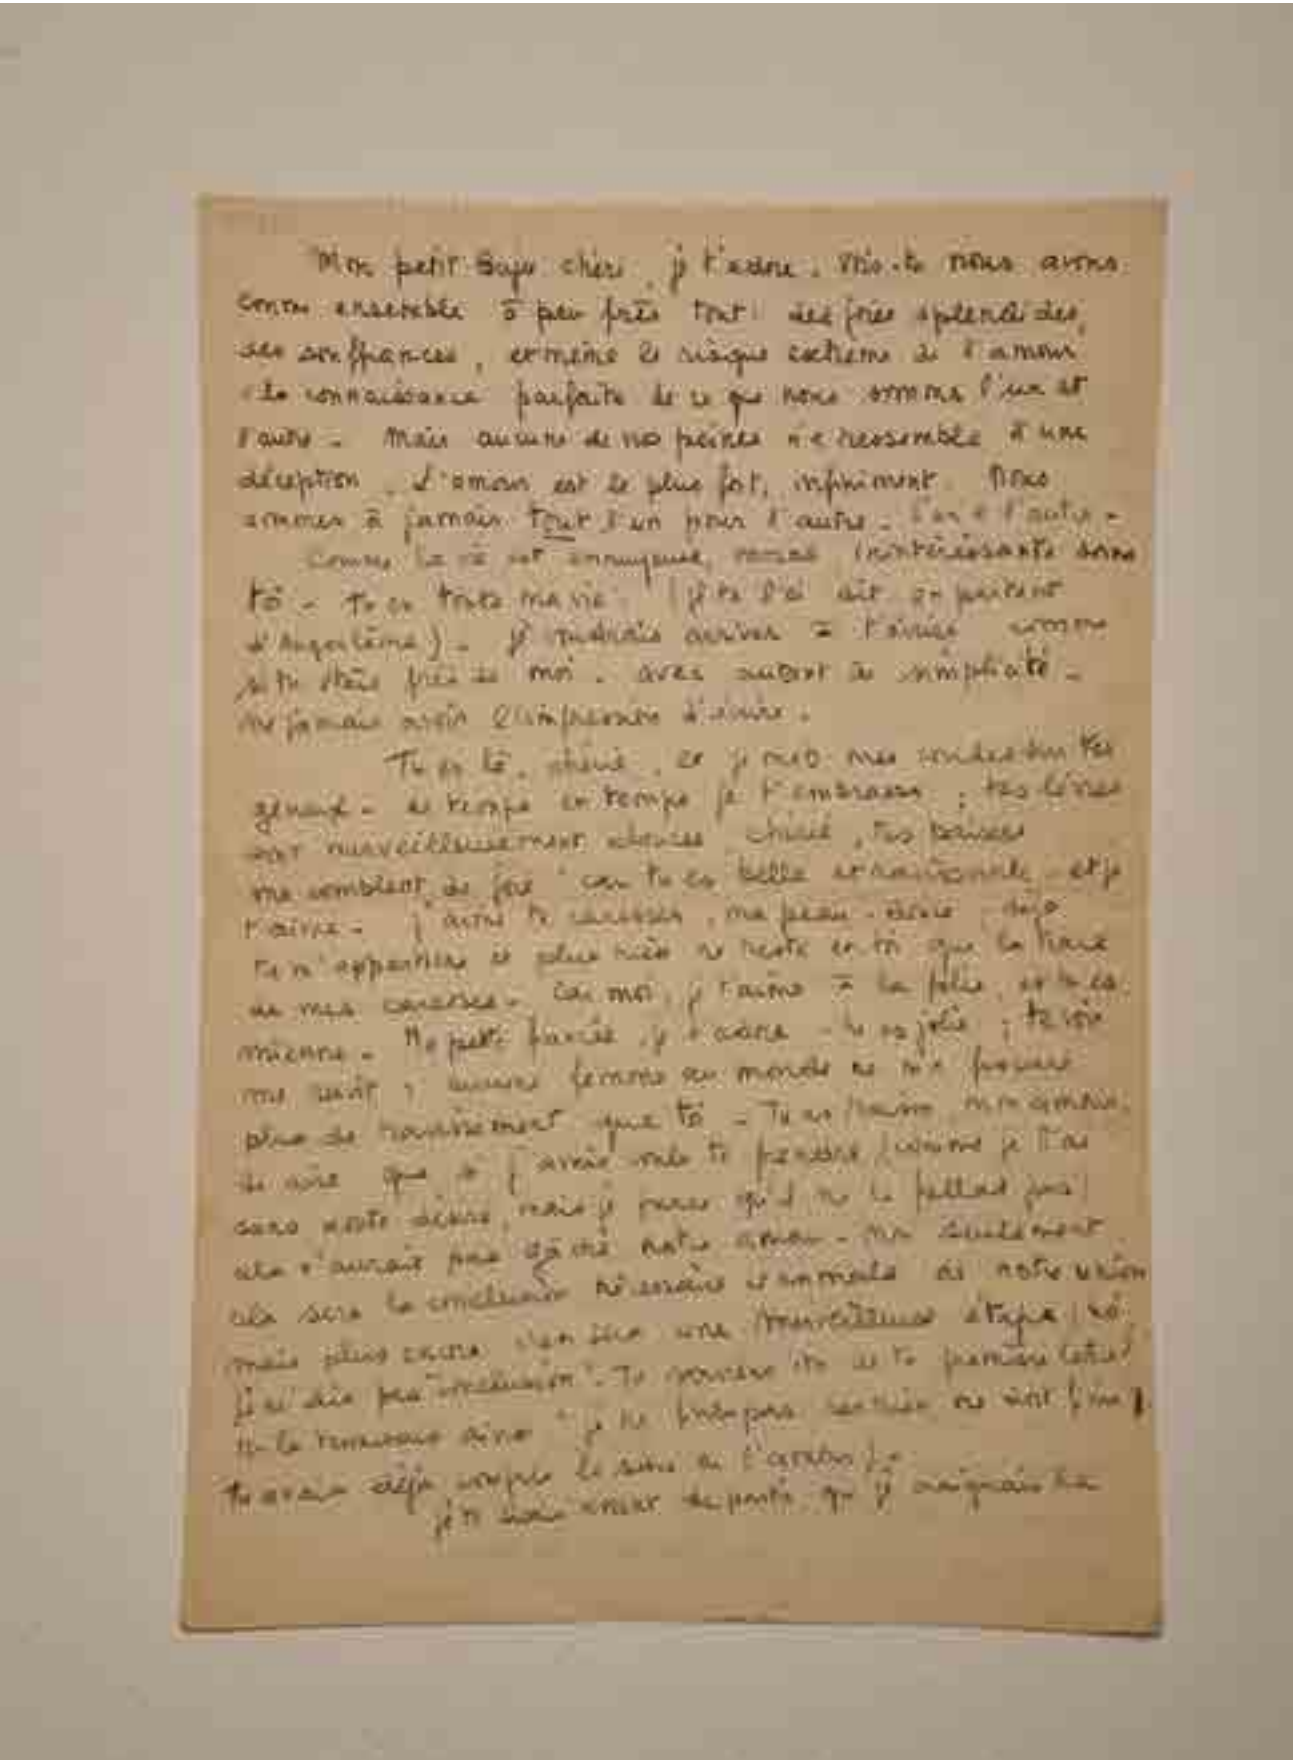 Mon petit chéri, je t'adore. Vois-tu nous avons
connu ensemble à peu près tout : des joies splendides,
des souffrances, et même le risque extrême de l'amour
la connaissance parfaite de ce que nous sommes l'un et
l'autre - Mais aucune de nos peines ne ressemble à une
déception. L'amour est le plus fort, infiniment. Nous
sommes à jamais tout l'un pour l'autre - l'un l'autre -
Comme la vie est ennuyeuse, inintéressante sans
toi - Tu es toute ma vie. (je te l'ai dit en partant
d'Angoulême) - Je voudrais arriver à t'écrire comme
si tu étais près de moi. avec autant de simplicité -
ne jamais avoir l'impression d'écrire.
Tu es là, chérie, et je mets mes coudes sur tes
genoux - de temps en temps je t'embrasse ; tes lèvres
sont merveilleusement douces chérie, tes baisers
me comblent de joie car tu es belle et - et je
t'aime - J'aime te caresser, ma
tu m'appartiens et plus rien ne reste en toi que la trace
de mes caresses - Car moi, je t'aime à la folie, et tu es
mienne - Ma petite fiancée, je t'adore - tu es jolie ; te voir
me ravit ; aucune femme au monde ne m'a procuré
plus de ravissement que toi - Tu as raison, mon amour,
de dire que si j'avais voulu te prendre (comme je l'ai
sans doute désiré, mais je pense qu'il ne le fallait pas)
cela n'aurait pas gâché notre amour - non seulement
cela sera la conclusion nécessaire et normale de notre union
mais plus encore c'en sera une merveilleuse étape (
je ne dis pas "conclusion". Te souviens-tu de ta première lettre ?
tu la terminais ainsi "je ne
tu avais déjà compris le sens de l'amour) -
je te avant de partir, que je craignais